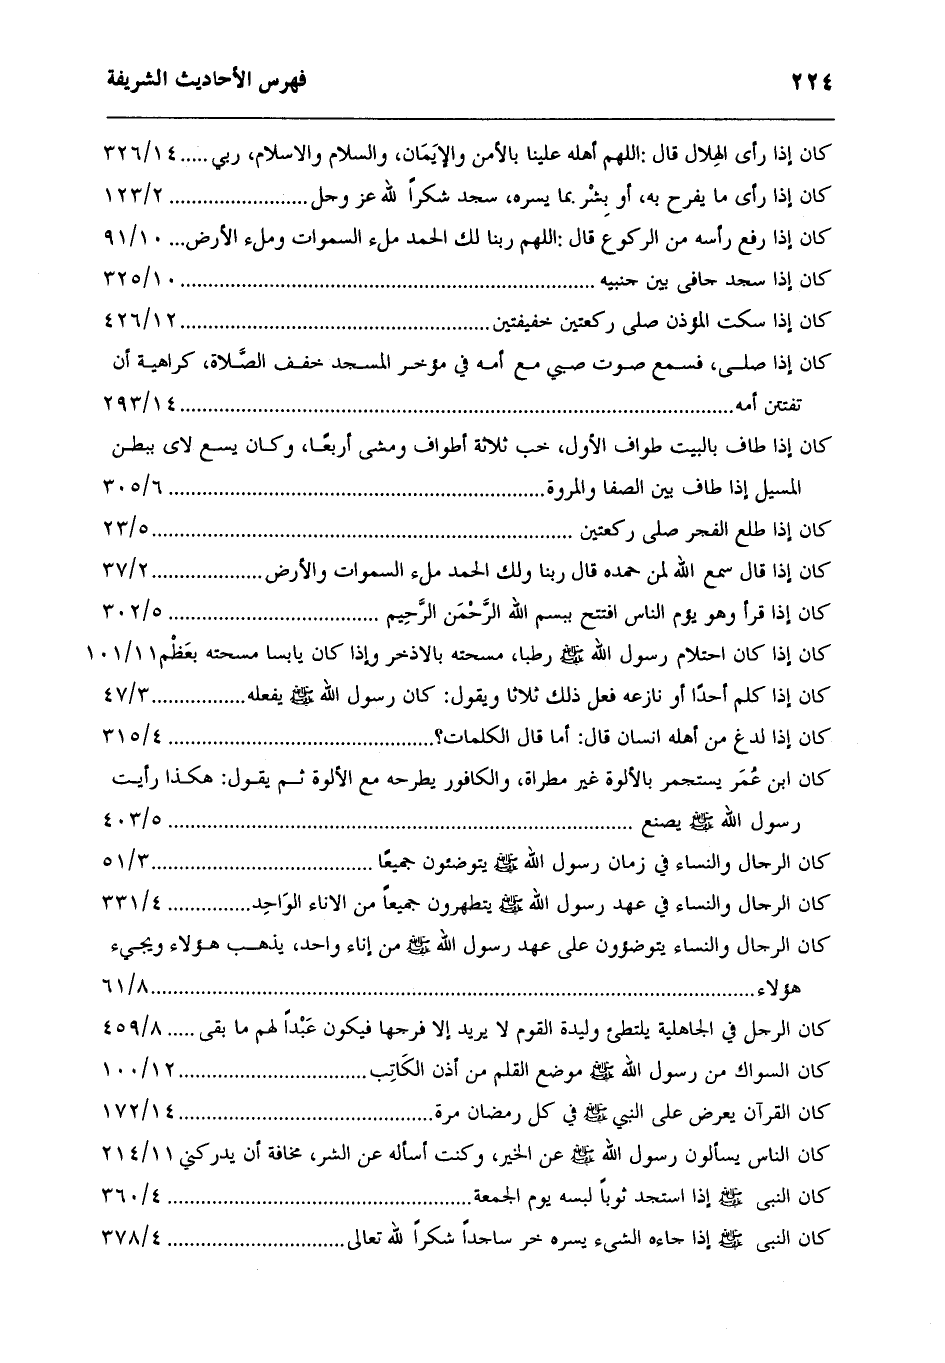 ٢٢٤ فهرس الأحاديث الشريفة
كان إذا رأى الهِلال قال :اللهم أهله علينا بالأمن والإيَمَان، والسلام والاسلام، ربي.....٣٢٦/١٤
كان إذا رأى ما يفرح به، أو بِشْر بما يسره، سجد شكراً لله عز وجل.........................١٢٣/٢
كان إذا رفع رأسه من الركوع قال :اللهم ربنا لك الحمد ملء السموات وملء الأرض... ٩١/١٠
كان إذا سجد جافى بين جنبيه ..........................................................................٣٢٥/١٠
كان إذا سكت المؤذن صلى ركعتين خفيفتين.......................................................٤٢٦/١٢
كان إذا صلى، فسمع صوت صبي مع أمه في مؤخر المسجد خفف الصَّلاة، كراهية أن
تفتتن أمه...................................................................................................٢٩٣/١٤
كان إذا طاف بالبيت طواف الأول، خب ثلاثة أطواف ومشى أربعًا، وكان يسع لاى ببطن
المسيل إذا طاف بين الصفا والمروة...................................................................٣٠٥/٦
كان إذا طلع الفجر صلى ركعتين ...........................................................................٢٣/٥
كان إذا قال سمع الله لمن حمده قال ربنا ولك الحمد ملء السموات والأرض....................٣٧/٢
كان إذا قرأ وهو يؤم الناس افتتح ببسم الله الرَّحْمَن الرَّحِيم ......................................٣٠٢/٥
كان إذا كان احتلام رسول الله ﷺ رطبا، مسحته بالاذخر وإذا كان يابسا مسحته بعَظْم١٠١/١١
كان إذا كلم أحدًا أو نازعه فعل ذلك ثلاثا ويقول: كان رسول الله ﷺ يفعله.................٤٧/٣
كان إذا لدغ من أهله انسان قال: أما قال الكلمات؟................................................٣١٥/٤
كان ابن عُمَر يستجمر بالألوة غير مطراة، والكافور يطرحه مع الألوة ثم يقول: هكذا رأيت
رسول الله ﷺ يصنع ..................................................................................٤٠٣/٥
كان الرجال والنساء في زمان رسول الله ﷺ يتوضئون جميعًا........................................٥١/٣
كان الرجال والنساء في عهد رسول الله ﷺ يتطهرون جميعاً من الاناء الوَاحِد...............٣٣١/٤
كان الرجال والنساء يتوضؤون على عهد رسول الله ﷺ من إناء واحد، يذهب هؤلاء ويجيء
هؤلاء............................................................................................................٦١/٨
كان الرجل في الجاهلية يلتطئ وليدة القوم لا يريد إلا فرجها فيكون عَبْداً لهم ما بقى .....٤٥٩/٨
كان السواك من رسول الله ﷺ موضع القلم من أذن الكَاتِب..................................١٠٠/١٢
كان القرآن يعرض على النبي ﷺ في كل رمضان مرة..............................................١٧٢/١٤
كان الناس يسألون رسول الله ﷺ عن الخير، وكنت أسأله عن الشر، مخافة أن يدركني ٢١٤/١١
كان النبى ﷺ إذا استجد ثوباً لبسه يوم الجمعة......................................................٣٦٠/٤
كان النبى ﷺ إذا جاءه الشىء يسره خر ساجداً شكراً لله تعالى................................٣٧٨/٤